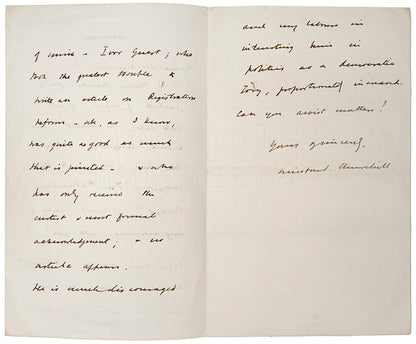 of mine – Ivor Guest; who
took the greatest trouble to
write an article on Registration
reform – wh, as I know,
was quite as good as much
that is printed – & who
has only received the
curtest & most formal
acknowledgement; & no
article appears.
He is much discouraged
and my labours in
interesting him in
politics as a democratic
Tory, proportionately increased.
Can you assist matters!
Yours sincerely,
Winston S. Churchill.